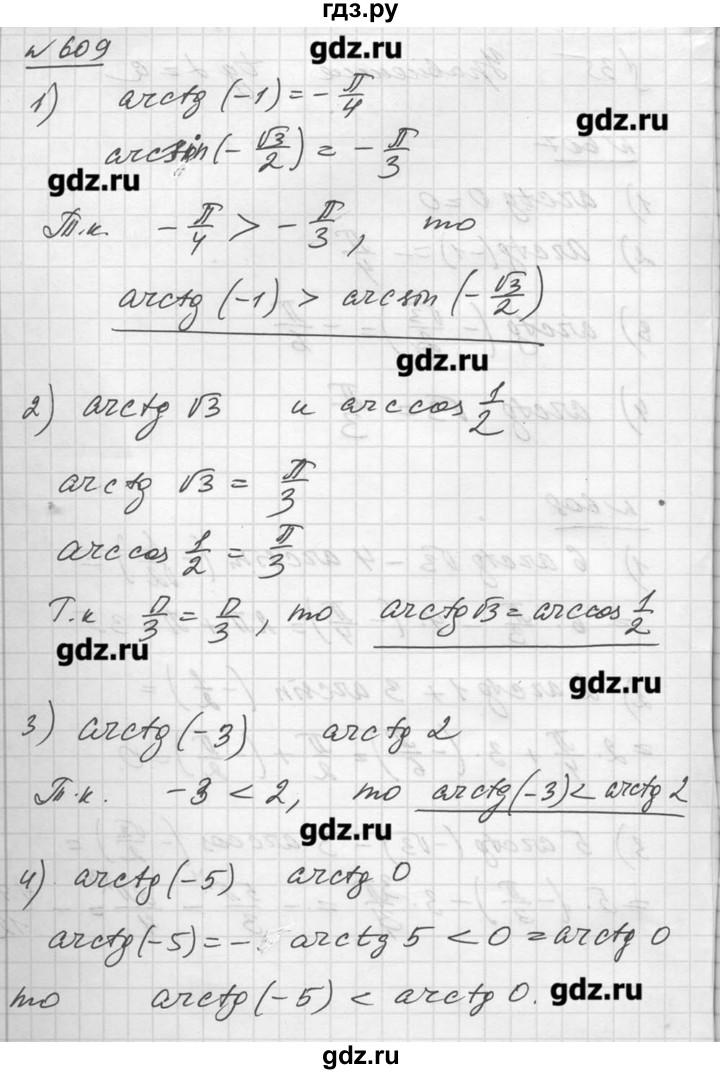 гдз.ру
№ 609
gdz.ru
1) arctg (-1) = - π/4
gdz.ru
arcsin (- √3/2) = - π/3
gdz.ru
Т.к. - π/4 > - π/3, то
arctg (-1) > arcsin (- √3/2)
gdz.ru
2) arctg √3 и arccos 1/2
arctg √3 = π/3
arccos 1/2 = π/3
Т.к π/3 = π/3, то arctg √3 = arccos 1/2
gdz.ru
gdz.ru
3) arctg (-3) arctg 2
Т.к. -3 < 2, то arctg (-3) < arctg 2
gdz.ru
4) arctg (-5) arctg 0
arctg (-5) = - arctg 5 < 0 = arctg 0
то arctg (-5) < arctg 0.
gdz.ru
gdz.ru